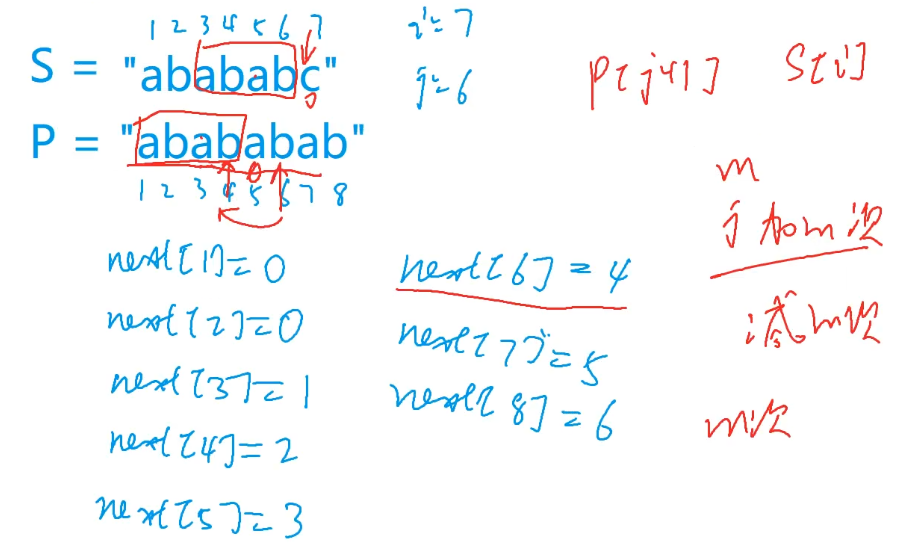 1 2 3 4 5 6 7
S = "abababc"
P = "abababab"
1 2 3 4 5 6 7 8
i=7
j=6
P[j+1] S[i]
next[1]=0
next[2]=0
next[3]=1
next[4]=2
next[5]=3
next[6]=4
next[7]=5
next[8]=6
m
j 加m次
减m次
m次